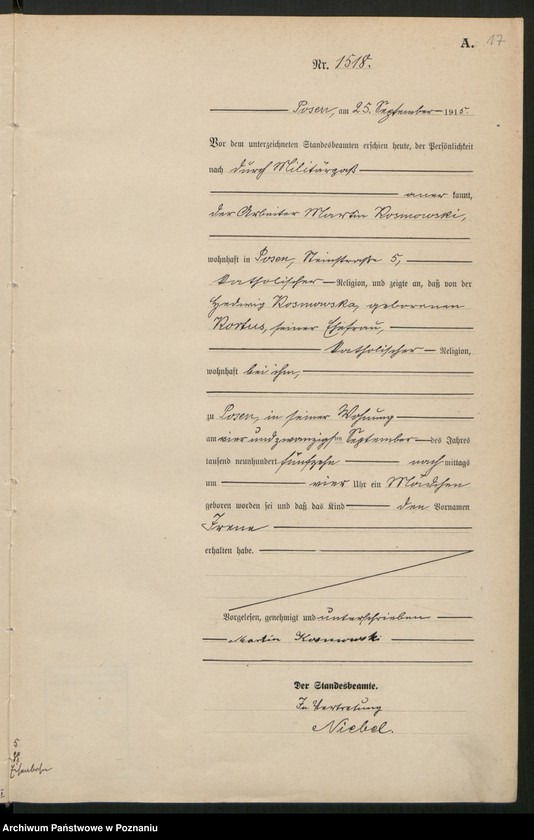 A. 17
Nr. 1518.
Posen, am 25. September 1915.
Vor dem unterzeichneten Standesbeamten erschien heute, der Persönlichkeit
nach durch Militärpaß
aner kannt,
der Arbeiter Martin Kosmowski,
wohnhaft in Posen, Steinstraße 5,
katholischer Religion, und zeigte an, daß von der
Hedwig Kosmowska, geborenen
Kortus, seiner Ehefrau,
katholischer Religion,
wohnhaft bei ihm,
zu Posen, in seiner Wohnung
am vierundzwanzigsten September des Jahres
tausend neunhundert fünfzehn nachmittags
um vier Uhr ein Mädchen
geboren worden sei und daß das Kind den Vornamen
Irene
erhalten habe.
Vorgelesen, genehmigt und unterschrieben
Martin Kosmowski
Der Standesbeamte.
In Vertretung
Niebel.
5
Archiwum Państwowe w Poznaniu